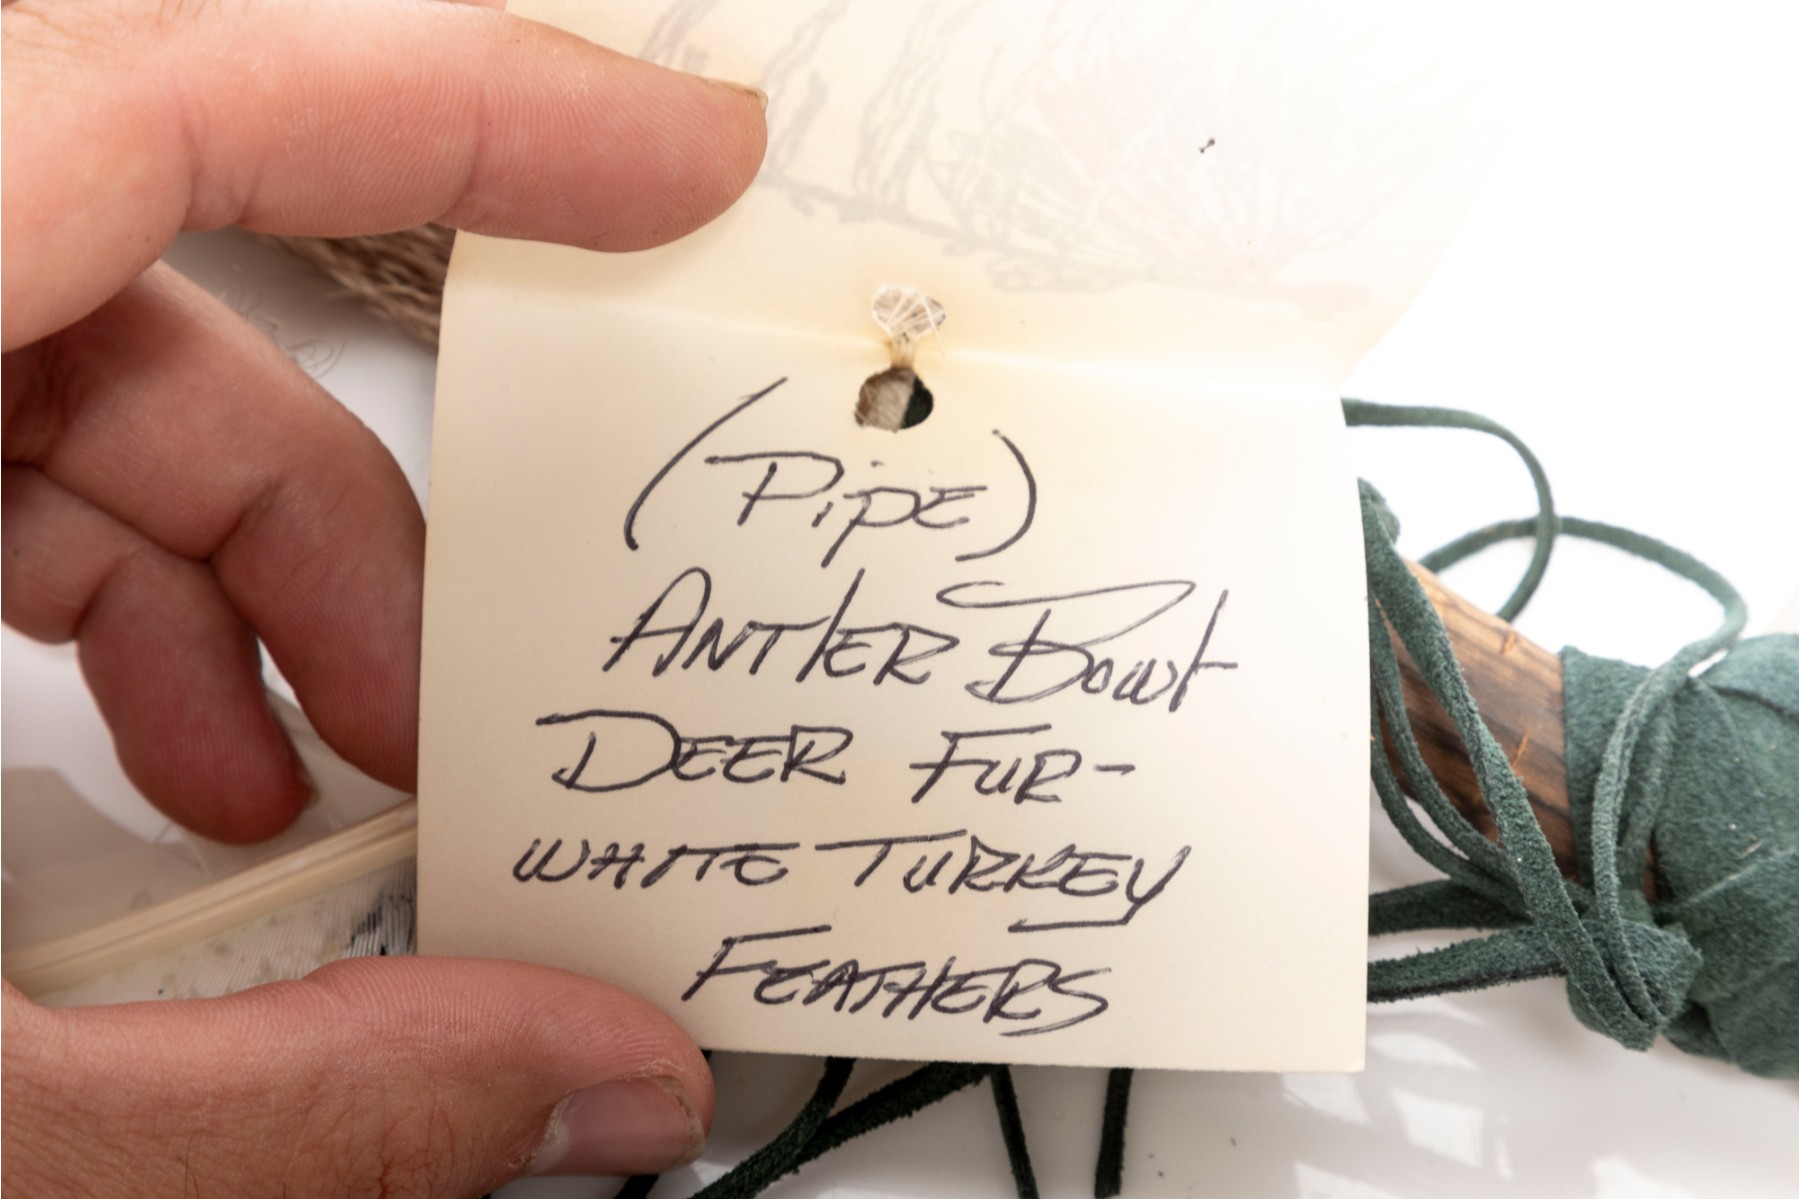 (Pipe)
ANTlER Bowl-
DEER FUR-
WHITE TURKEY
FEATHERS